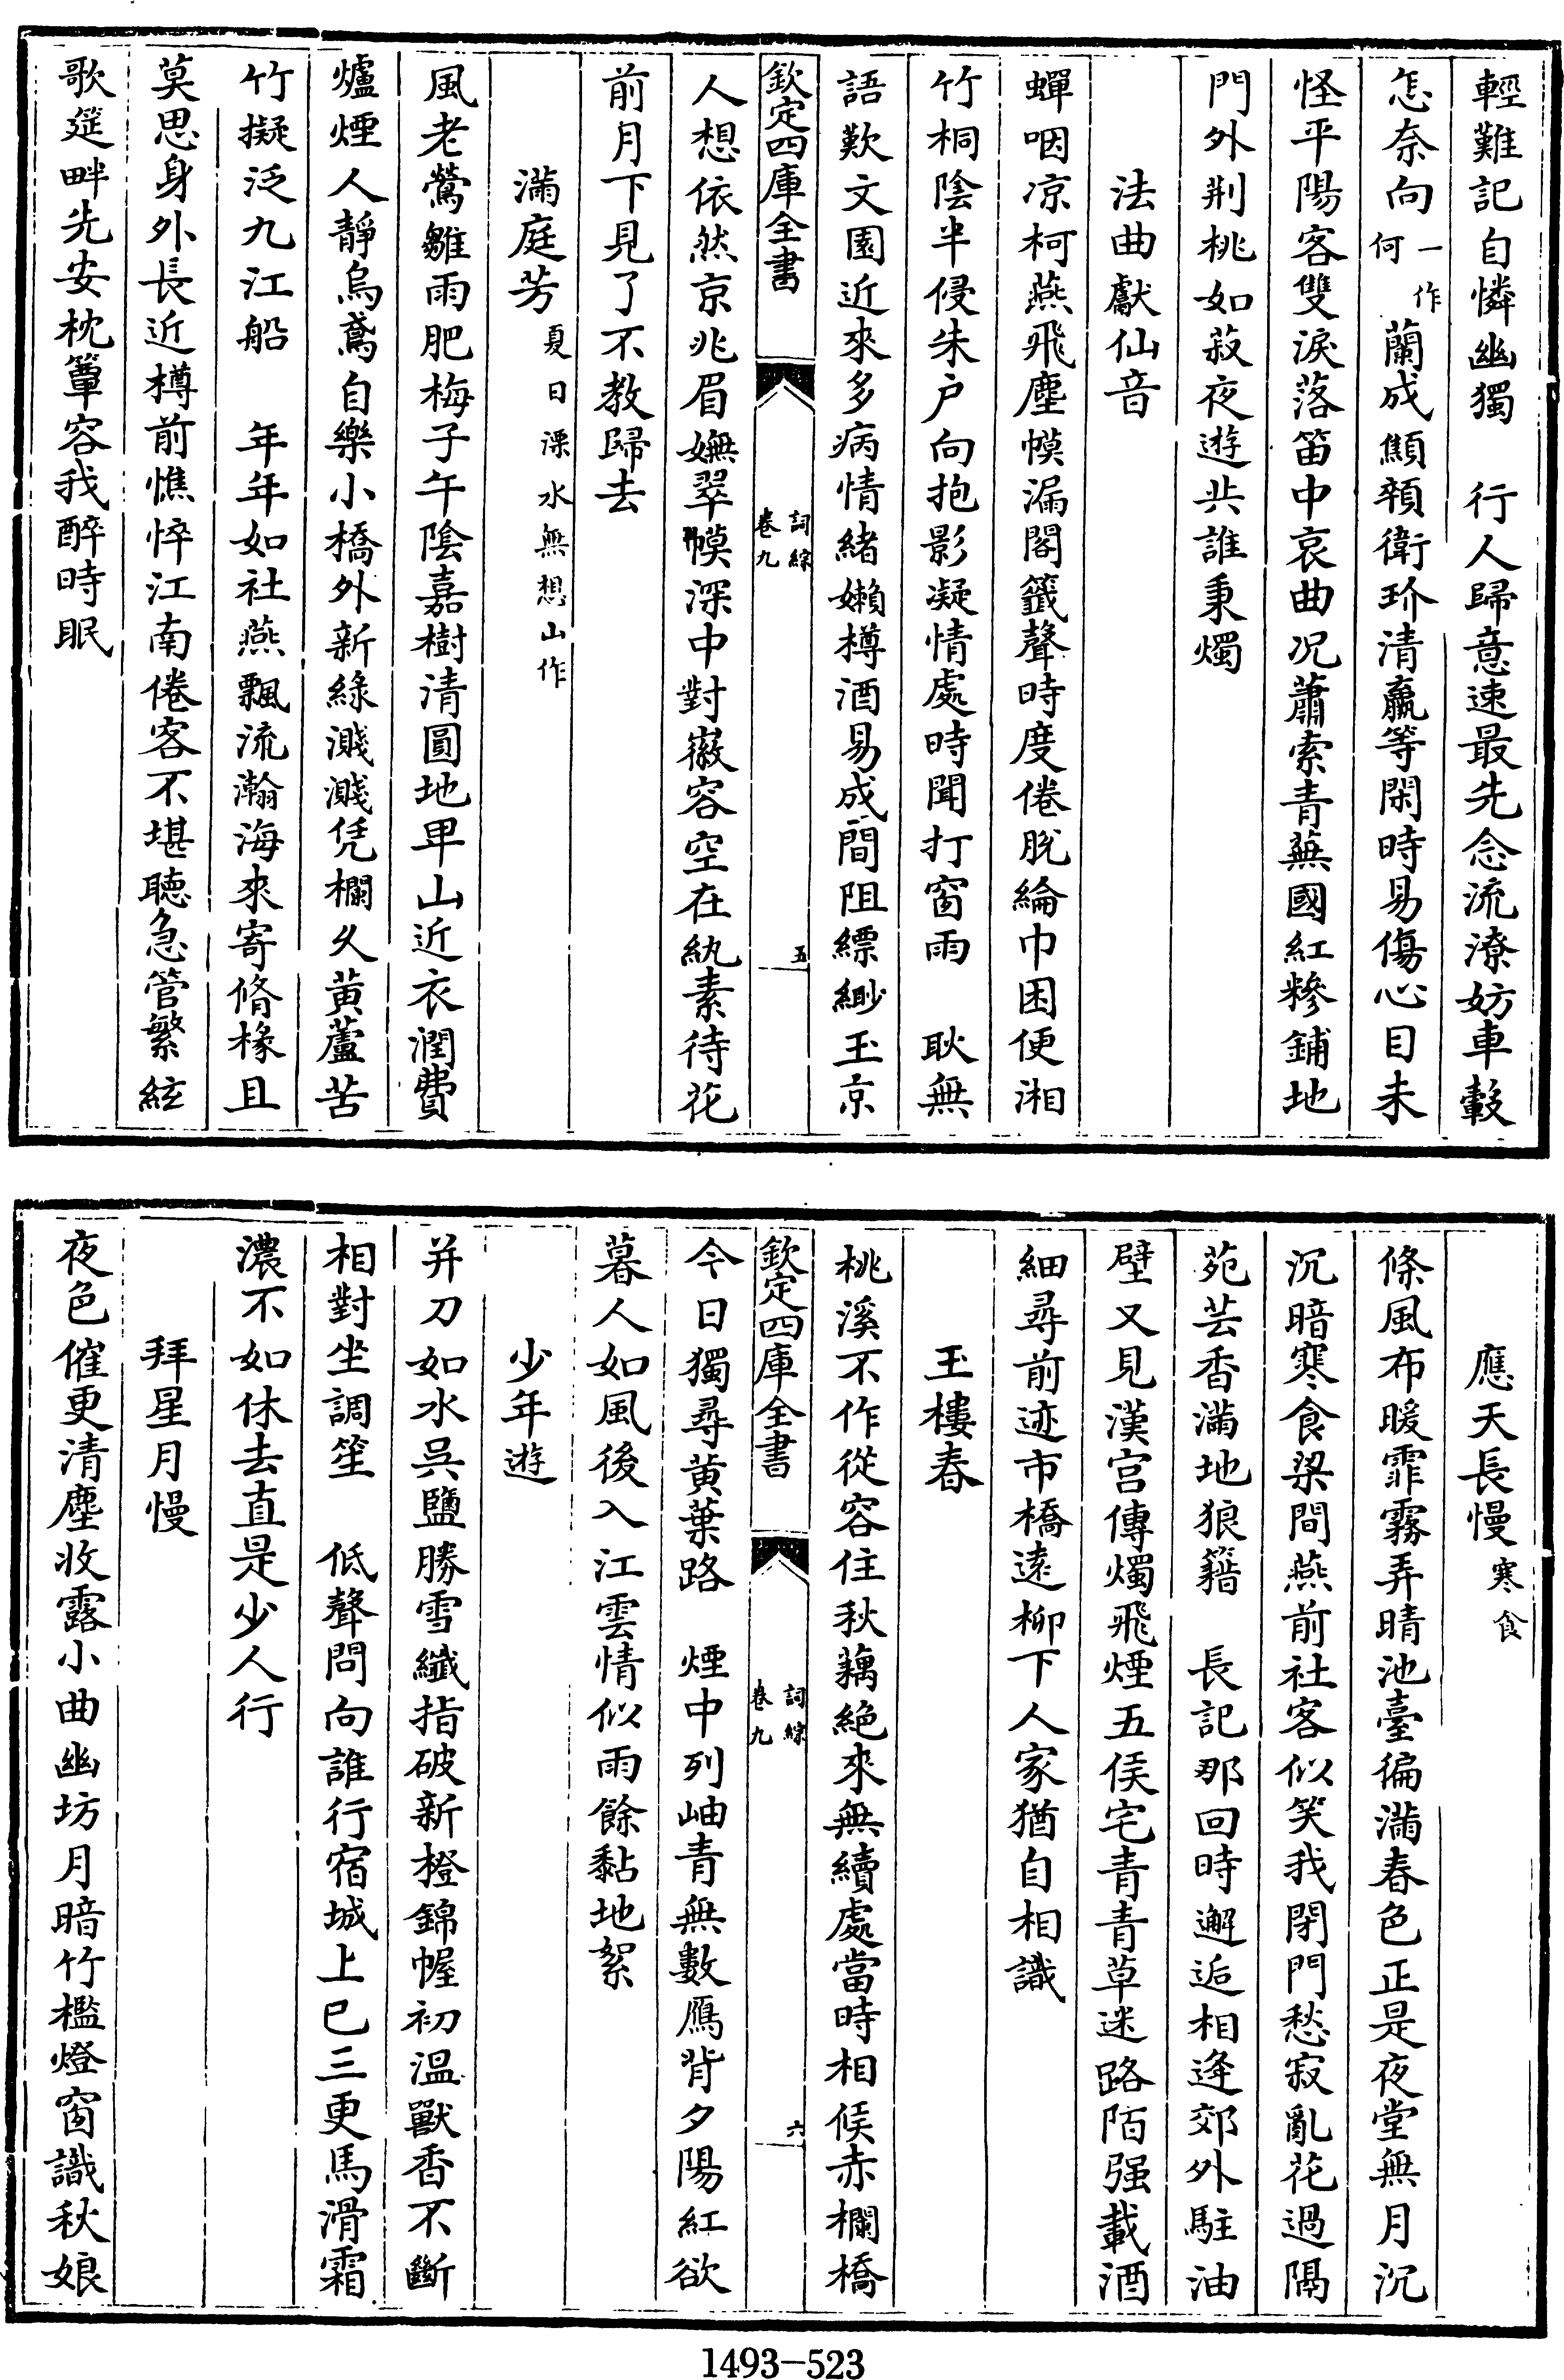 輕難記自憐幽獨　行人歸意速最先念流潦妨車轂
怎奈向一作何蘭成顦顇衛玠清羸等閑時易傷心目未
怪平陽客雙淚落笛中哀曲况蕭索青蕪國紅糝鋪地
門外荆桃如菽夜遊共誰秉燭
法曲獻仙音
蟬咽凉柯燕飛塵幙漏閣籤聲時度倦脫綸巾困便湘
竹桐陰半侵朱户向抱影凝情處時聞打窗雨　耿無
語歎文園近來多病情緒嬾樽酒易成間阻縹緲玉京
欽定四庫全書
詞綜
卷九
五
人想依然京兆眉嫵翠幙深中對徽容空在紈素待花
前月下見了不教歸去
滿庭芳夏日溧水無想山作
風老鶯雛雨肥梅子午陰嘉樹清圓地卑山近衣潤費
爐煙人靜烏鳶自樂小橋外新綠濺濺凭欄久黄蘆苦
竹擬泛九江船　年年如社燕飄流瀚海來寄脩椽且
莫思身外長近樽前憔悴江南倦客不堪聽急管繁絃
歌筵畔先安枕簟容我醉時眠
應天長慢寒食
條風布暖霏霧弄晴池臺徧滿春色正是夜堂無月沉
沉暗寒食梁間燕前社客似笑我閉門愁寂亂花過隔
苑芸香滿地狼籍　長記那回時邂逅相逢郊外駐油
壁又見漢宫傳燭飛煙五侯宅青青草迷路陌强載酒
細尋前迹市橋遠柳下人家猶自相識
玉樓春
桃溪不作從容住秋藕絶來無續處當時相候赤欄橋
欽定四庫全書
詞綜
卷九
六
今日獨尋黄葉路　煙中列岫青無數鴈背夕陽紅欲
暮人如風後入江雲情似雨餘黏地絮
少年遊
并刀如水呉鹽勝雪纖指破新橙錦幄初温獸香不斷
相對坐調笙　低聲問向誰行宿城上已三更馬滑霜
濃不如休去直是少人行
拜星月慢
夜色催更清塵收露小曲幽坊月暗竹檻燈窗識秋娘
1493-523